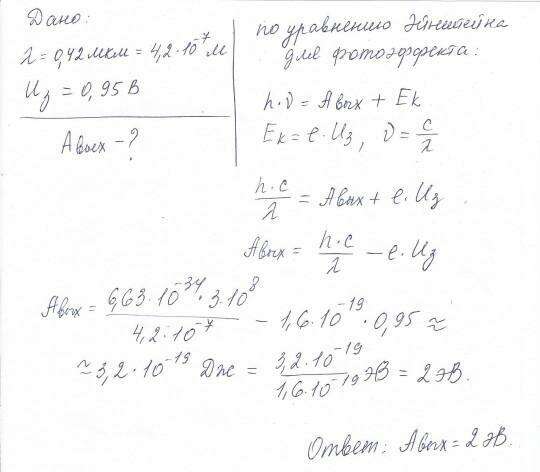 Дано:
λ = 0,42 мкм = 4,2·10⁻⁷ м
Uз = 0,95 В
Aвых - ?
по уравнению Эйнштейна
для фотоэффекта:
h·ν = Aвых + Eк
Eк = e·Uз, ν = c/λ
h·c/λ = Aвых + e·Uз
Aвых = h·c/λ - e·Uз
Aвых = 6,63·10⁻³⁴·3·10⁸/4,2·10⁻⁷ - 1,6·10⁻¹⁹·0,95 ≈
≈ 3,2·10⁻¹⁹ Дж = 3,2·10⁻¹⁹/1,6·10⁻¹⁹ эВ = 2 эВ.
Ответ: Aвых = 2 эВ.